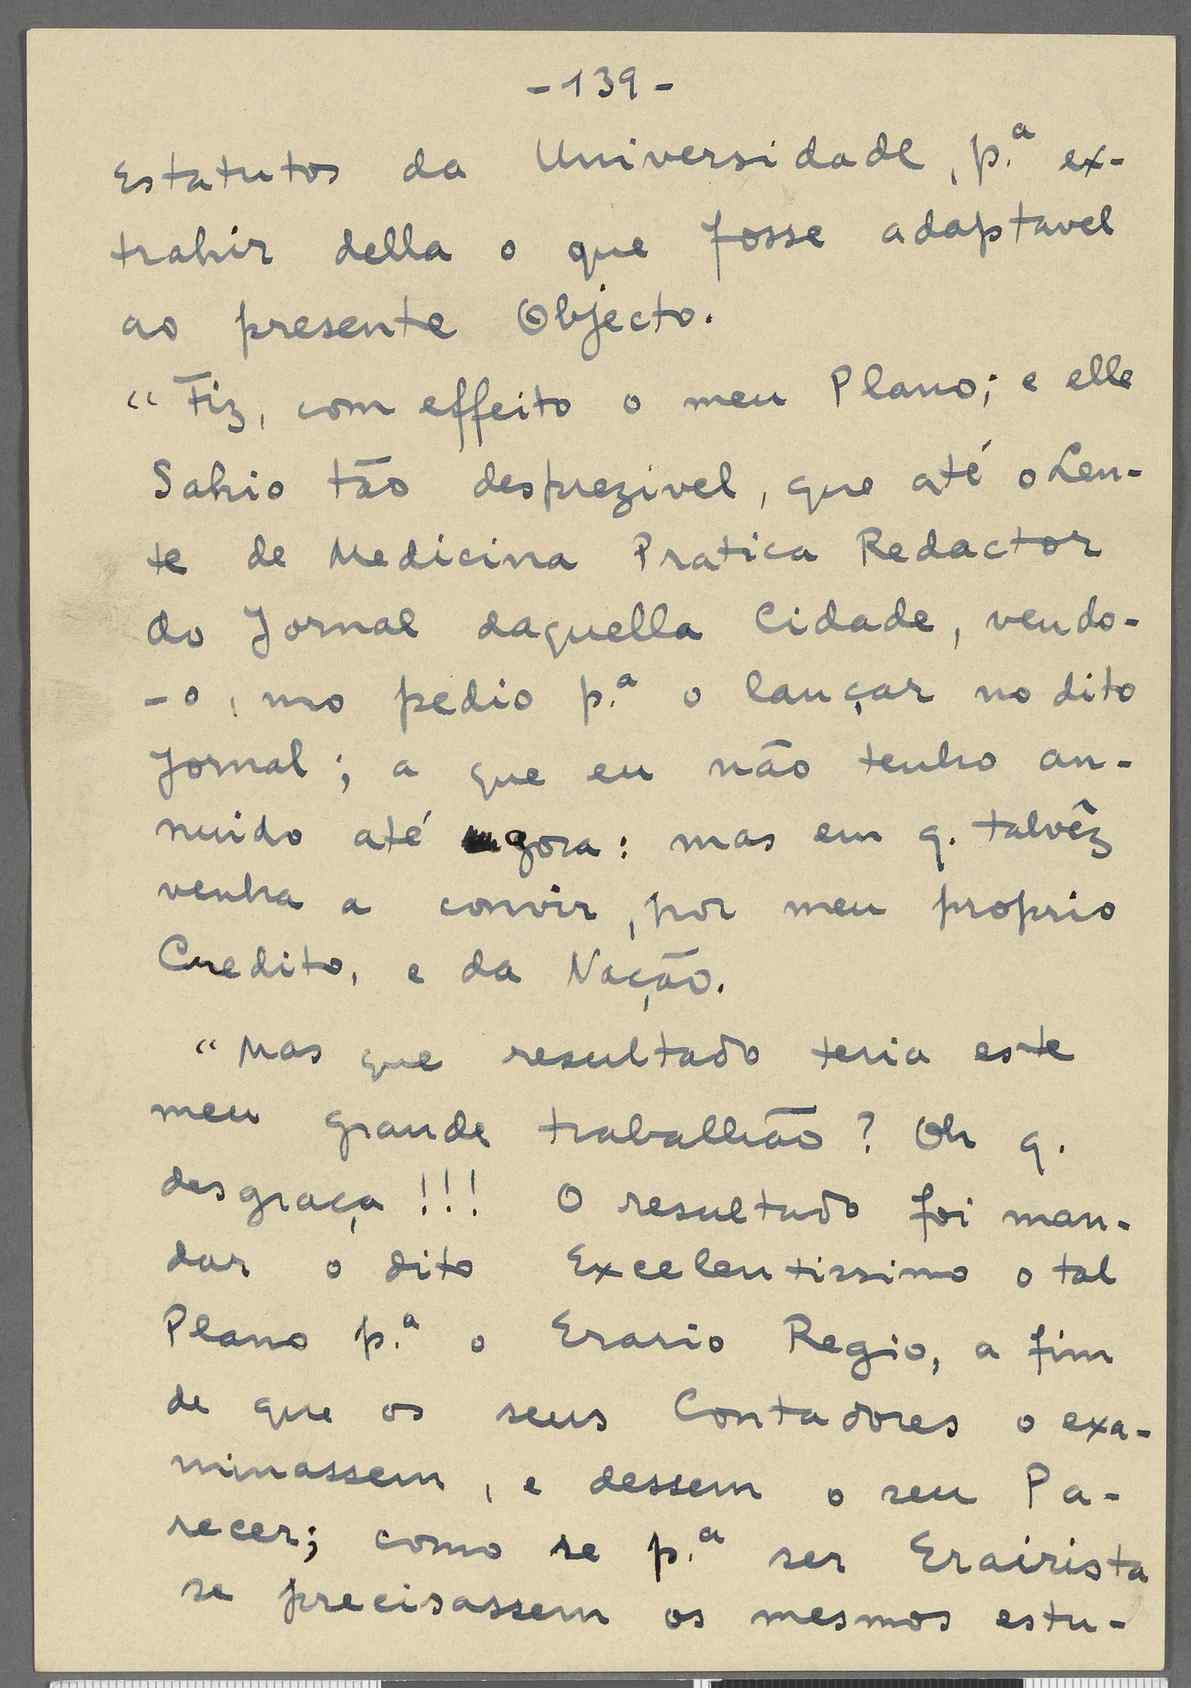 -139-
Estatutos da Universidade, p.ª ex-
trahir della o que fosse adaptavel
ao presente Objecto.
"Fiz, com effeito o meu Plano; e elle
Sahio tão desprezivel, que até o Len-
te de Medicina Pratica Redactor
do Jornal daquella Cidade, vendo-
-o, mo pedio p.ª o lançar no dito
Jornal; a que eu não tenho an-
nuido até agora: mas em q. talvêz
venha a convir, por meu proprio
Credito, e da Nação.
"Mas que resultado teria este
meu grande trabalhão? Oh q.
desgraça!!! O resultado foi man-
dar o dito Excelentissimo o tal
Plano p.ª o Erario Regio, a fim
de que os seus Contadores o exa-
minassem, e dessem o seu Pa-
recer; como se p.ª ser Erairista
se precisassem os mesmos estu-